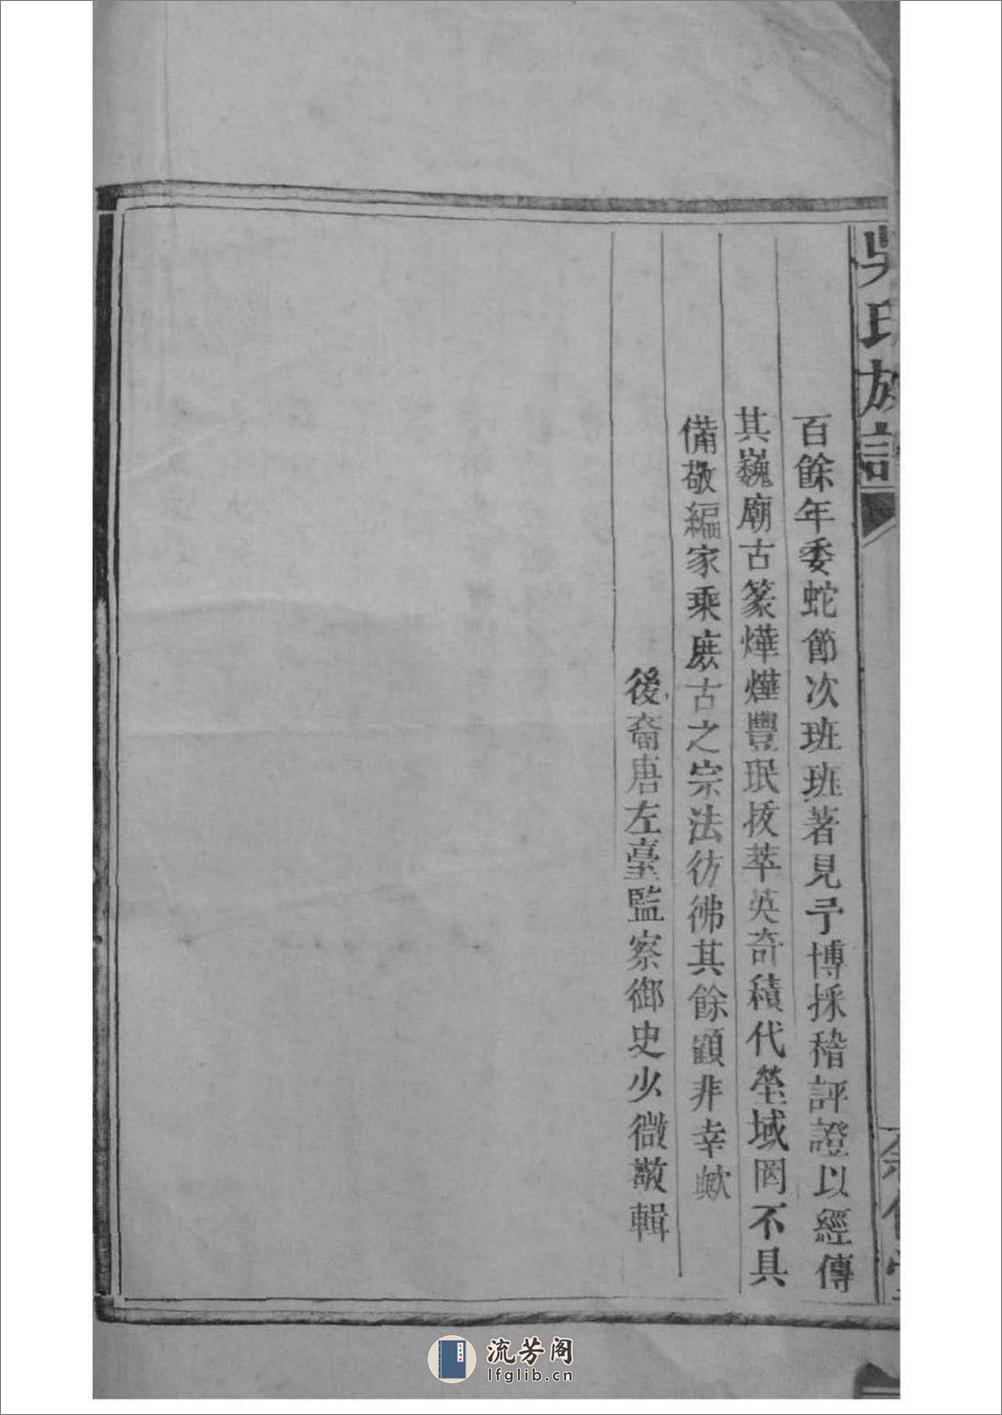 吳氏族譜
百餘年委蛇節次班班著見予博採稽評證以經傳
其巍廟古篆燁燁豐珉拔萃英奇積代塋域罔不具
備敬編家乘庶古之宗法彷彿其餘顧非幸歟
後裔唐左臺監察御史少微敬輯
流芳阁
lfglib.cn